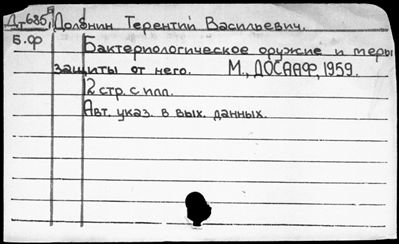 Дт-685, Долбнин Терентий Васильевич.
Б.Ф
Бактериологическое оружие и меры
защиты от него. М., ДОСААФ, 1959.
12 стр. с илл.
Авт. указ. в вых. данных.